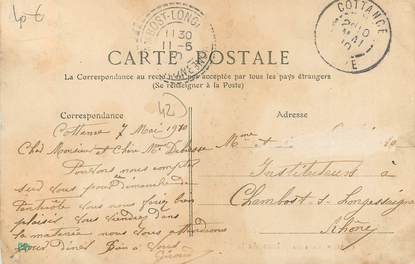 4p €
COTTANCE
CHAMBOST-LONG
11 30
11-5
CARTE POSTALE
La Correspondance au recto n'est pas acceptée par tous les pays étrangers
(Se renseigner à la Poste)
Correspondance
42
Adresse
Cottance 7 Mai 1910
Cher Monsieur et Chère Mme
Pouvons nous compter
sur vous pour dimanche
Peut-être vous nous feriez bien
plaisir. Vous viendrez dans
la matinée nous vous attendrons
pour dîner. Bien à vous
Mme et
Instituteurs à
Chambost-s-Longessaigne
Rhône